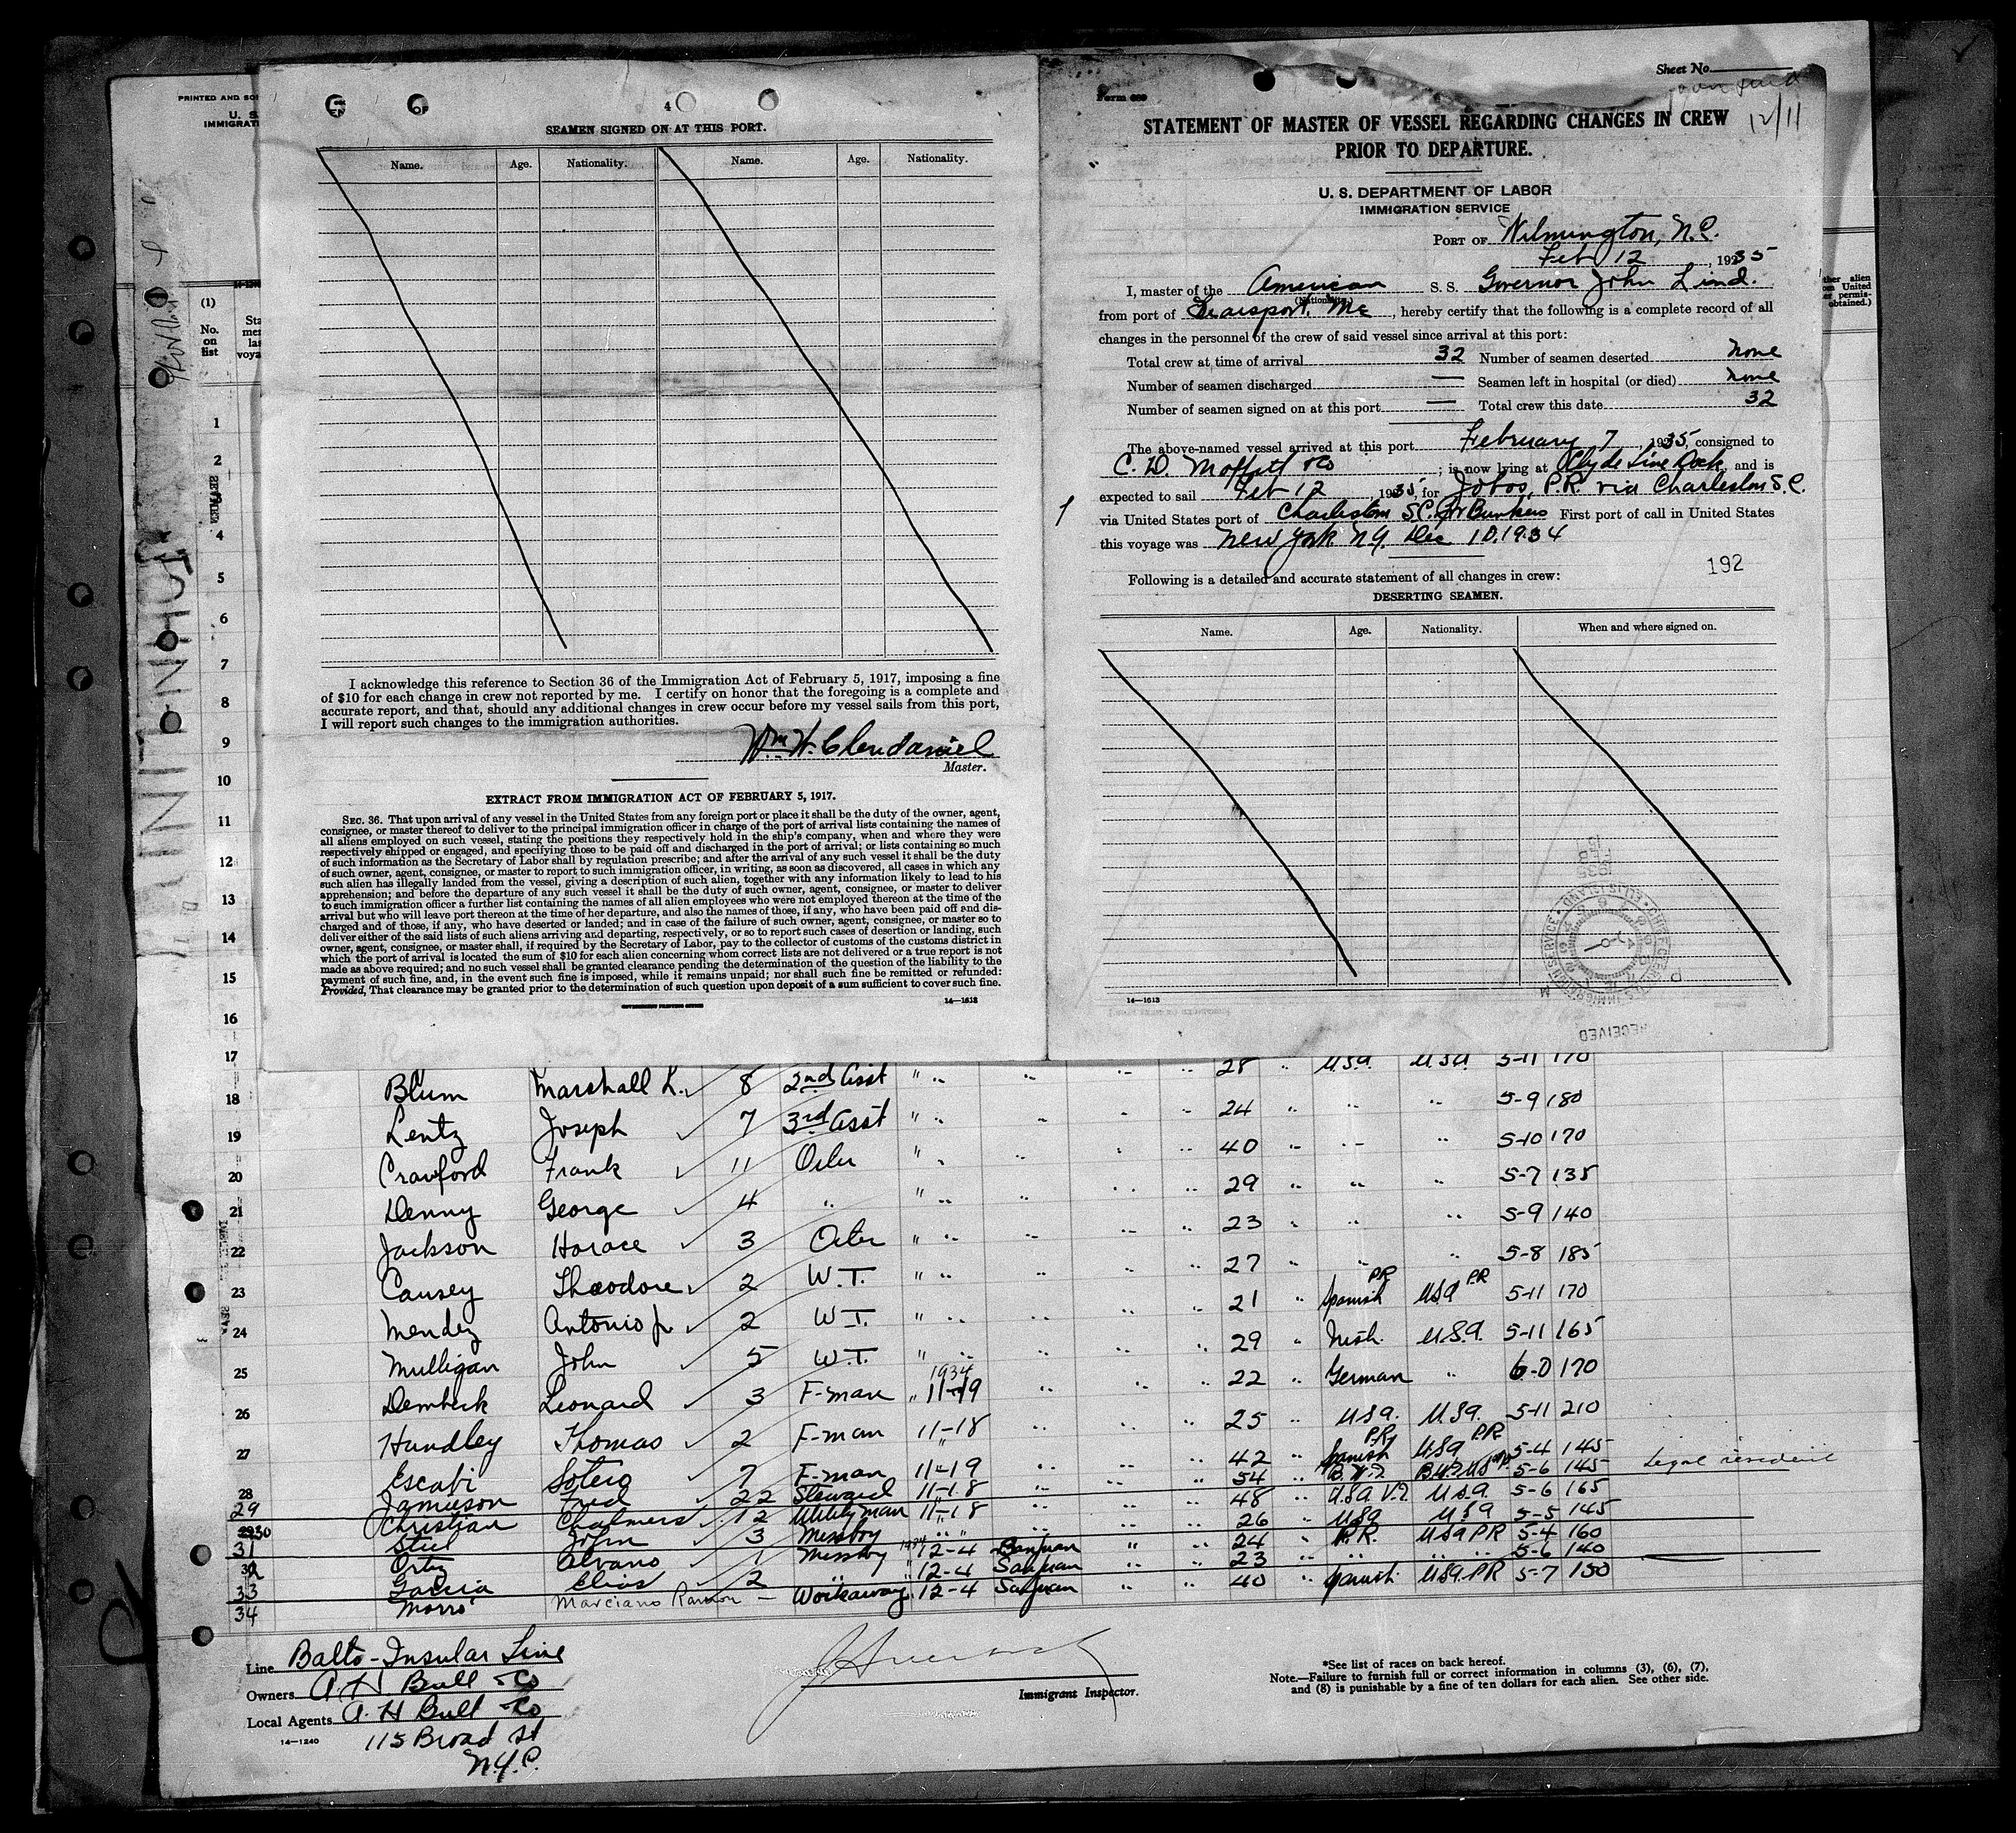 Sheet No.
12/11
4
SEAMEN SIGNED ON AT THIS PORT.
Name. Age. Nationality. Name. Age. Nationality.
I acknowledge this reference to Section 36 of the Immigration Act of February 5, 1917, imposing a fine
of $10 for each change in crew not reported by me. I certify on honor that the foregoing is a complete and
accurate report, and that, should any additional changes in crew occur before my vessel sails from this port,
I will report such changes to the immigration authorities.
Wm H. Clendaniel
Master.
EXTRACT FROM IMMIGRATION ACT OF FEBRUARY 5, 1917.
SEC. 36. That upon arrival of any vessel in the United States from any foreign port or place it shall be the duty of the owner, agent,
consignee, or master thereof to deliver to the principal immigration officer in charge of the port of arrival lists containing the names of
all aliens employed on such vessel, stating the positions they respectively hold in the ship's company, when and where they were
respectively shipped or engaged, and specifying those to be paid off and discharged in the port of arrival; or lists containing so much
of such information as the Secretary of Labor shall by regulation prescribe; and after the arrival of any such vessel it shall be the duty
of such owner, agent, consignee, or master to report to such immigration officer, in writing, as soon as discovered, all cases in which any
such alien has illegally landed from the vessel, giving a description of such alien, together with any information likely to lead to his
apprehension; and before the departure of any such vessel it shall be the duty of such owner, agent, consignee, or master to deliver
to such immigration officer a further list containing the names of all alien employees who were not employed thereon at the time of the
arrival but who will leave port thereon at the time of her departure, and also the names of those, if any, who have been paid off and dis-
charged and of those, if any, who have deserted or landed; and in case of the failure of such owner, agent, consignee, or master so to
deliver either of the said lists of such aliens arriving and departing, respectively, or so to report such cases of desertion or landing, such
owner, agent, consignee, or master shall, if required by the Secretary of Labor, pay to the collector of customs of the customs district in
which the port of arrival is located the sum of $10 for each alien concerning whom correct lists are not delivered or a true report is not
made as above required; and no such vessel shall be granted clearance pending the determination of the question of the liability to the
payment of such fine, and, in the event such fine is imposed, while it remains unpaid; nor shall such fine be remitted or refunded:
Provided, That clearance may be granted prior to the determination of such question upon deposit of a sum sufficient to cover such fine.
GOVERNMENT PRINTING OFFICE 14—1613
Form 689
STATEMENT OF MASTER OF VESSEL REGARDING CHANGES IN CREW
PRIOR TO DEPARTURE.
U. S. DEPARTMENT OF LABOR
IMMIGRATION SERVICE
PORT OF Wilmington, N.C.
Feb 12, 1935
I, master of the American S. S. Governor John Lind.
(Nationality.)
from port of Searsport, Me, hereby certify that the following is a complete record of all
changes in the personnel of the crew of said vessel since arrival at this port:
Total crew at time of arrival 32 Number of seamen deserted none
Number of seamen discharged — Seamen left in hospital (or died) none
Number of seamen signed on at this port — Total crew this date 32
The above-named vessel arrived at this port February 7, 1935, consigned to
C. D. Moffett & Co; is now lying at Clyde Line Dock, and is
expected to sail Feb 12, 1935, for Jobos, P.R. via Charleston S.C.
via United States port of Charleston S.C. for Bunkers First port of call in United States
this voyage was New York N.Y. Dec 10, 1934
192
Following is a detailed and accurate statement of all changes in crew:
DESERTING SEAMEN.
Name. Age. Nationality. When and where signed on.
14—1613
RECEIVED
PRINTED AND SO
U. S.
IMMIGRATI
(1)
No.
on
list
1
2
4
5
6
7
8
9
10
11
12
13
14
15
16
17 28 " U.S.A. U.S.A. 5-11 170
18 Blum Marshall L. 8 2nd Asst " 24 " 5-9 180
19 Lentz Joseph 7 3rd Asst " 40 " 5-10 170
20 Crawford Frank 11 Oiler " 29 " 5-7 135
21 Denny George 4 " 23 " 5-9 140
22 Jackson Horace 3 Oiler " 27 " 5-8 185
23 Causey Theodore 2 W.T. " 21 " Spanish P.R. USA P.R 5-11 170
24 Mendez Antonio Jr 2 W.T. " 29 " Irish U.S.A. 5-11 165
25 Mulligan John 5 W.T. " 22 " German " 6-0 170
26 Dembeck Leonard 3 F-man 1934 " 11-19 25 " USA. U.S.A. 5-11 210
27 Handley Thomas 2 F-man 11-18 42 " P.R. Spanish USA P.R 5-4 145
28 Escabi Sotero 7 F-man 11-19 54 " B.W.I. 5-6 145 Legal resident
29 Jamieson Fred 22 Steward 11-18 48 " U.S.A. V.I. U.S.A. 5-6 165
30 Christian Chalmers 12 Utilityman 11-18 26 " USA USA 5-5 145
31 Steel John 3 Messboy " 24 " P.R. USA PR 5-4 160
32 Ortiz Alvano 1 Messboy 1934 12-4 San Juan 23 " 5-6 140
33 Garcia Elias 2 " 12-4 San Juan 40 " Spanish USA. PR 5-7 150
34 Morro Marciano Ramon — Workaway 12-4 San Juan
Line Balto-Insular Line
Owners A H Bull & Co
Local Agents A. H Bull & Co
14—1240 115 Broad St
N.Y.C.
Immigrant Inspector.
*See list of races on back hereof.
Note.—Failure to furnish full or correct information in columns (3), (6), (7),
and (8) is punishable by a fine of ten dollars for each alien. See other side.